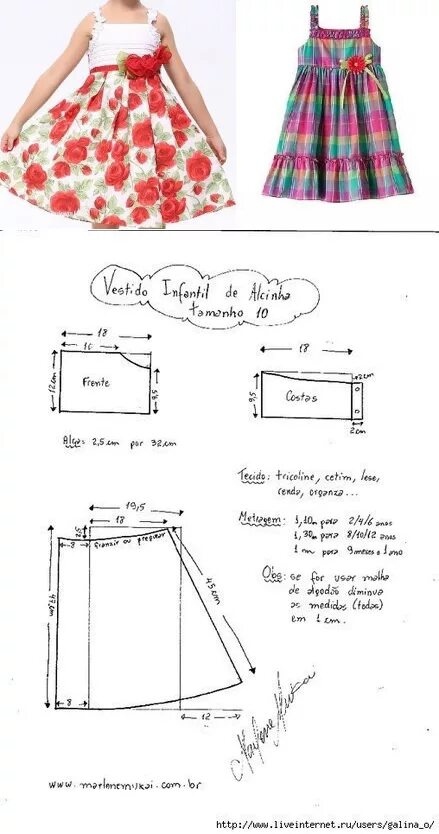 Vestido Infantil de Alcinha
tamanho 10
18
10
12cm
Frente
5,6
Alça: 2,5cm por 32cm
18
2cm
9,5
Costas
2cm
Tecido: tricoline, cetim, lese,
renda, organza...
Metragem: 1,10m para 2/4/6 anos
1,30m para 8/10/12 anos
1 m para 9 meses a 1 ano
Obs: se for usar malha
de algodão diminua
as medidas (todas)
em 1 cm.
19,5
18
8
franzir ou preguear
47cm
45cm
8
12
Marlene Mukai
www.marlenemukai.com.br
http://www.liveinternet.ru/users/galina_o/